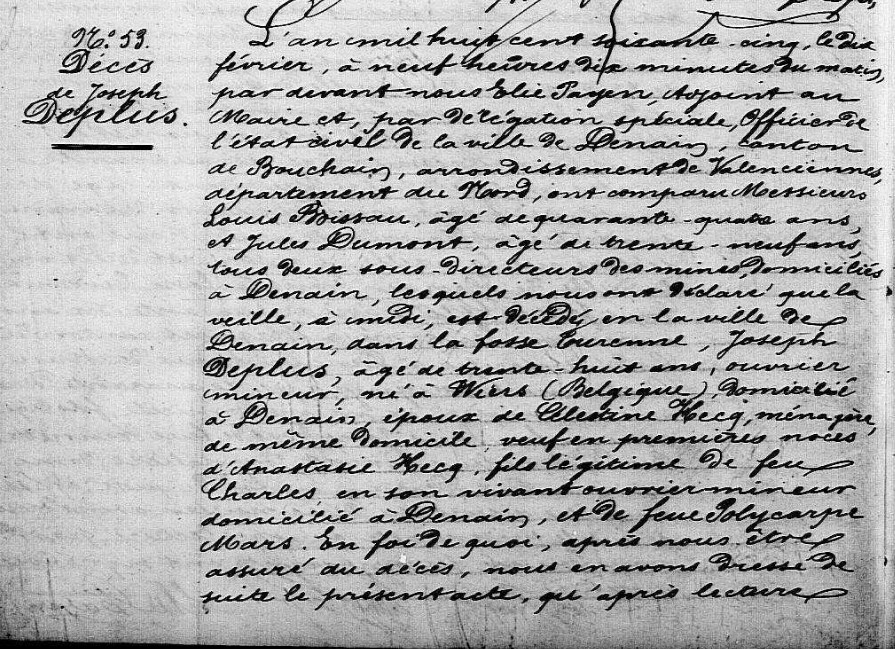 N.º 53.
Décès
de Joseph
Deplus.
L'an mil huit cent soixante-cinq, le dix
février, à neuf heures dix minutes du matin,
par devant nous Elie Payen, Adjoint au
Maire et, par délégation spéciale, Officier de
l'état civil de la ville de Denain, canton
de Bouchain, arrondissement de Valenciennes,
département du Nord, ont comparu Messieurs
Louis Bissau, âgé de quarante-quatre ans,
et Jules Dumont, âgé de trente-neuf ans,
tous deux sous-directeurs des mines, domiciliés
à Denain, lesquels nous ont déclaré que la
veille, à midi, est décédé, en la ville de
Denain, dans la fosse Turenne, Joseph
Deplus, âgé de trente-huit ans, ouvrier
mineur, né à Wiers (Belgique), domicilié
à Denain, époux de Célestine Hecq, ménagère,
de même domicile, veuf en premières noces
d'Anastasie Hecq, fils légitime de feu
Charles, en son vivant ouvrier mineur
domicilié à Denain, et de feue Polycarpe
Mars. En foi de quoi, après nous être
assuré du décès, nous en avons dressé de
suite le présent acte, qu'après lecture